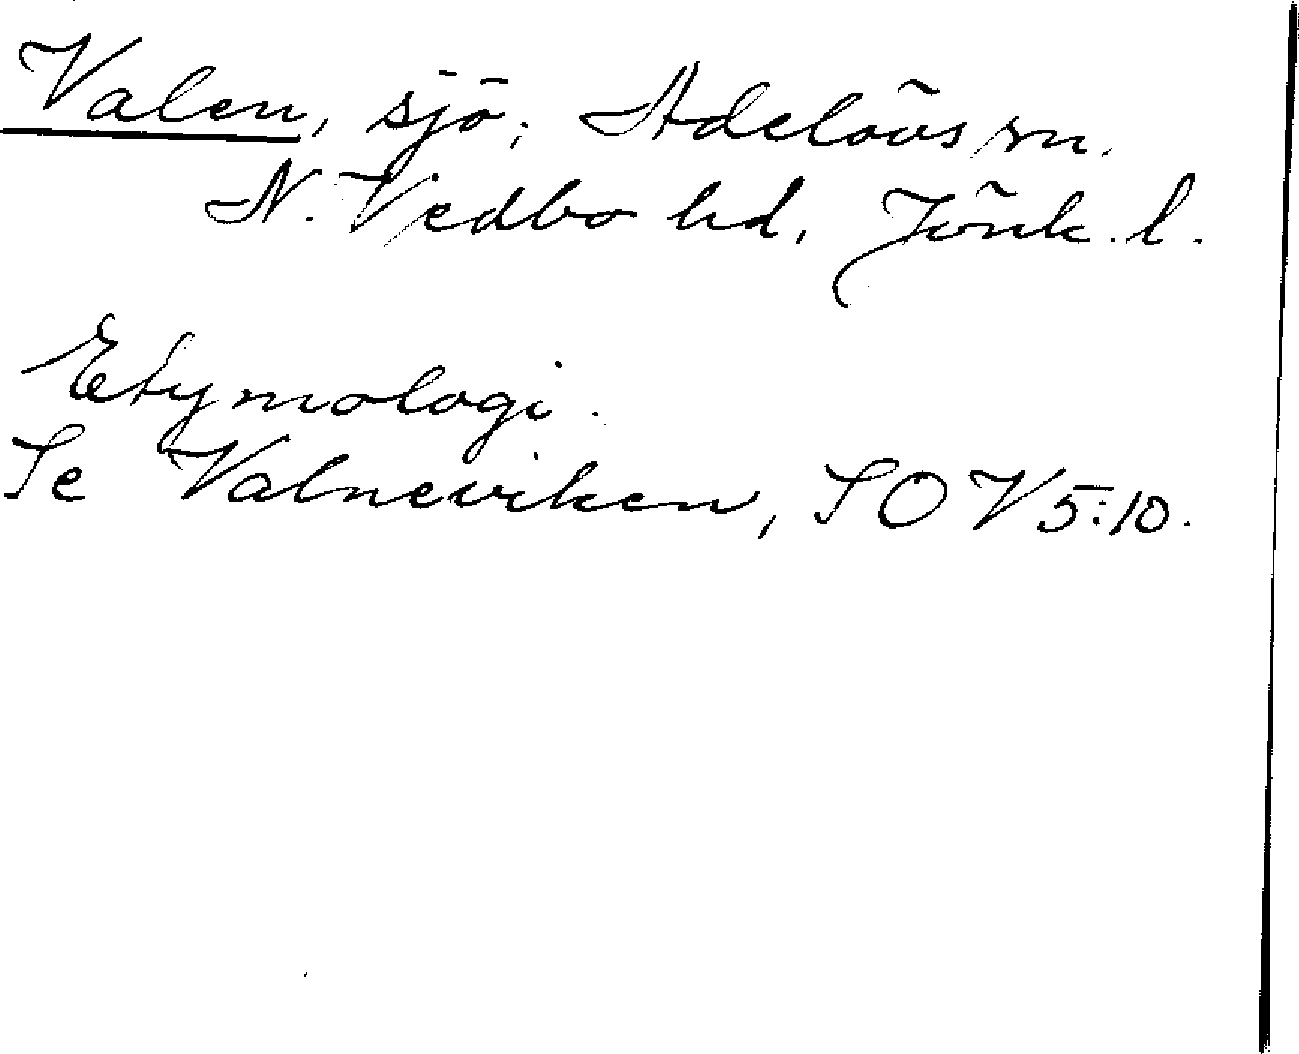 Valen, sjö, Adelövs sn.
N. Vedbo hd, Jönk. l.
Etymologi.
Se Valneviken, SOV 5:10.